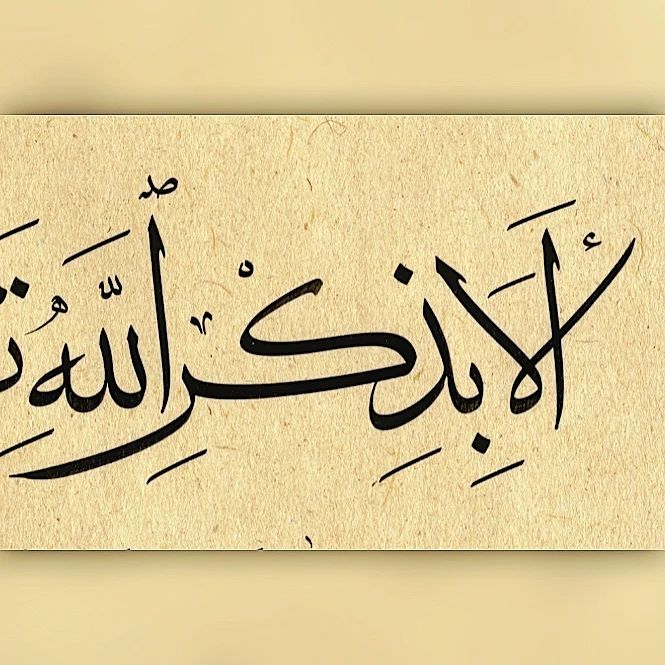 أَلَا بِذِكْرِ ٱللَّهِ